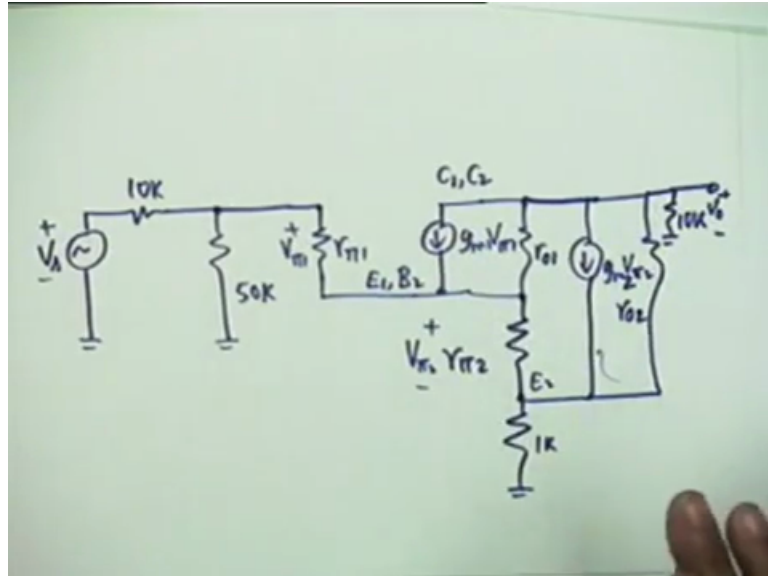 C₁, C₂
10K
+
Vₛ
-
50K
+
Vπ₁
rπ₁
E₁, B₂
gₘ₁Vπ₁
r₀₁
gₘ₂Vπ₂
r₀₂
10K
+
V₀
-
+
Vπ₂
-
rπ₂
E₂
1K